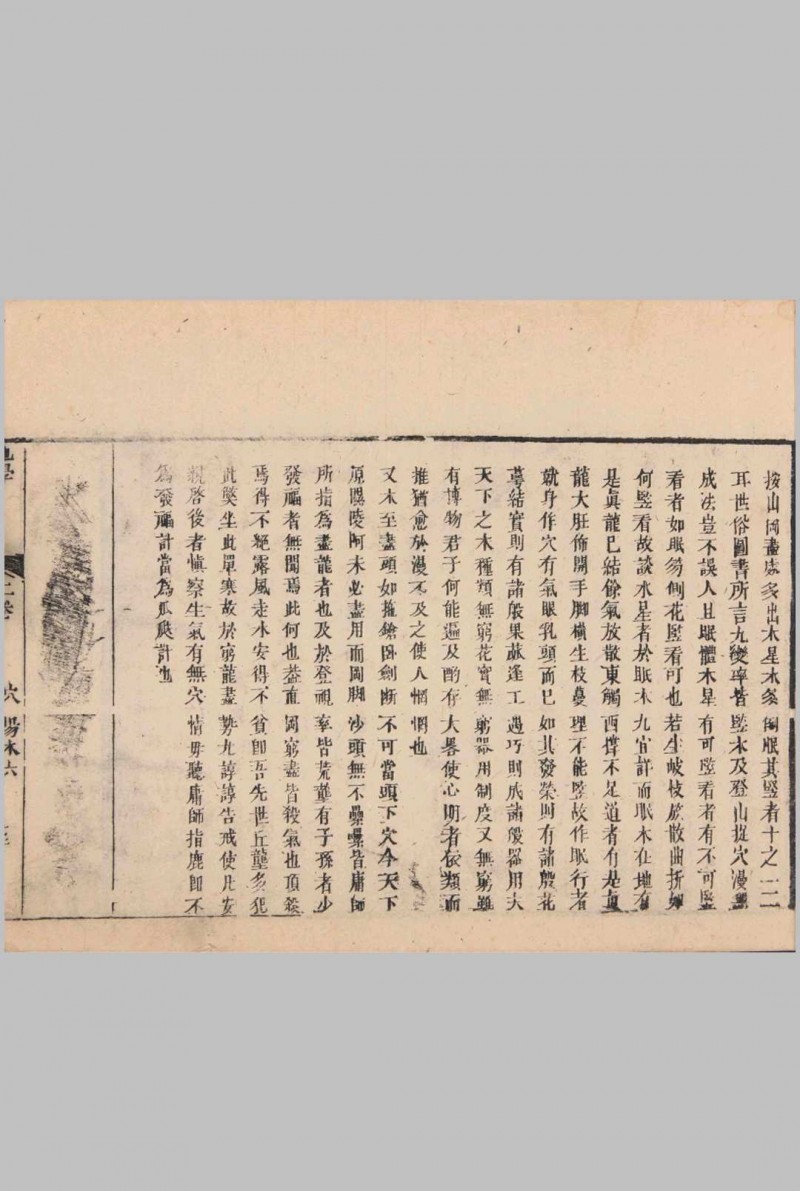 按山岡盡處多出木星木多倒眠其竪者十之一二
耳世俗圖書所言九變率皆竪木及登山捉穴漫無
成法豈不誤人且眠體木星有可竪看者有不可竪
看者如眠芴倒花竪看可也若生岐枝放散曲折如
何竪看故談木星者於眠木尤宜詳而眠木在地有
是眞龍已結餘氣放散東觸西撑不足道者有是眞
龍大肚佈開手脚橫生枝蔓理不能竪故作眠行者
就身作穴有氣眼乳頭而已如其發榮則有諸般花
蕚結實則有諸般果蓏逢工遇巧則成諸般器用夫
天下之木種類無窮花實無窮器用制度又無窮雖
有博物君子何能遍及酌存大畧使心期者依類而
推猶愈於漫不及之使人惘惘也
又木至盡頭如拖鎗臥劍斷不可當頭下穴今天下
原隰陵阿未必盡用而岡脚沙頭無不纍纍皆庸師
所指爲盡龍者也及於登視率皆荒壟有子孫者少
發福者無聞焉此何也蓋直岡窮盡皆殺氣也頂殺
焉得不絕露風走水安得不貧卽吾先世丘壟多犯
此獘坐此單寒故於窮龍盡勢尤諄諄告戒使凡安
親啓後者愼察生氣有無穴情毋聽庸師指鹿卽不
爲發福計當爲瓜瓞計也
上卷 穴 陽木六